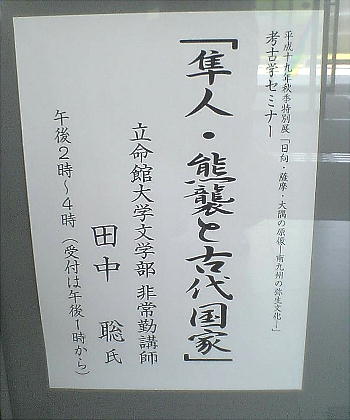 平成十九年秋季特別展「日向・薩摩・大隅の原像―南九州の弥生文化―」
考古学セミナー
「隼人・熊襲と古代国家」
立命館大学文学部 非常勤講師
田中 聡氏
午後2時～4時(受付は午後1時から)